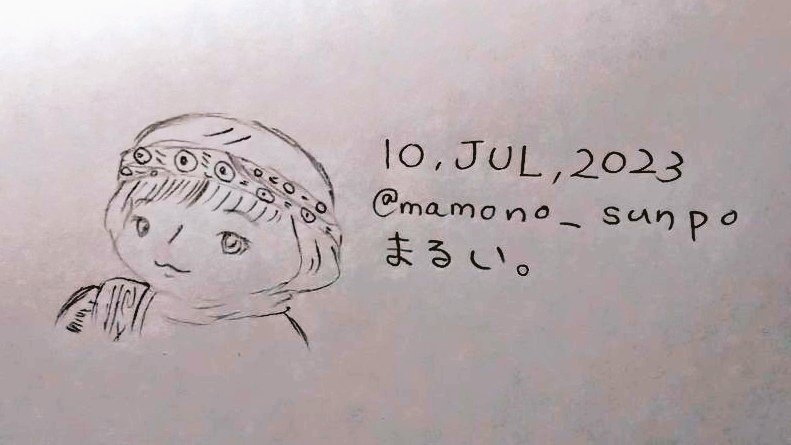 10, JUL, 2023
@mamono_sunpo
まるい。